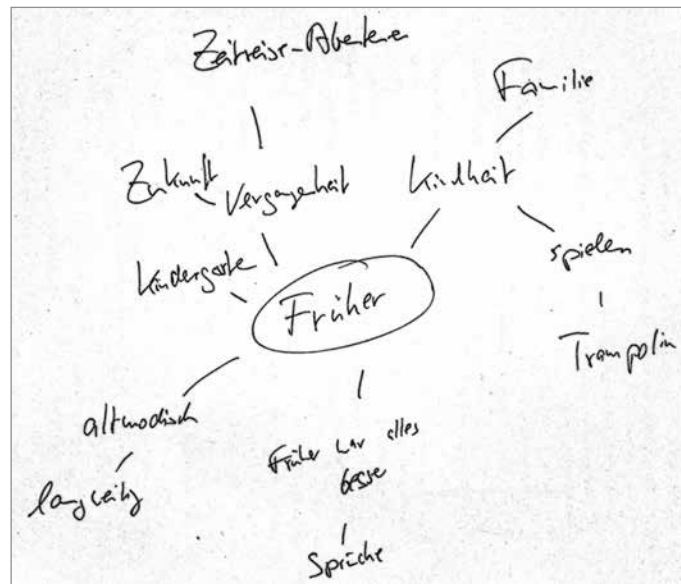 Zeitreise-Abenteuer
Familie
Zukunft
Vergangenheit
Kindheit
Kindergarten
spielen
Früher
Trampolin
altmodisch
langweilig
Früher war alles
besser
Sprüche